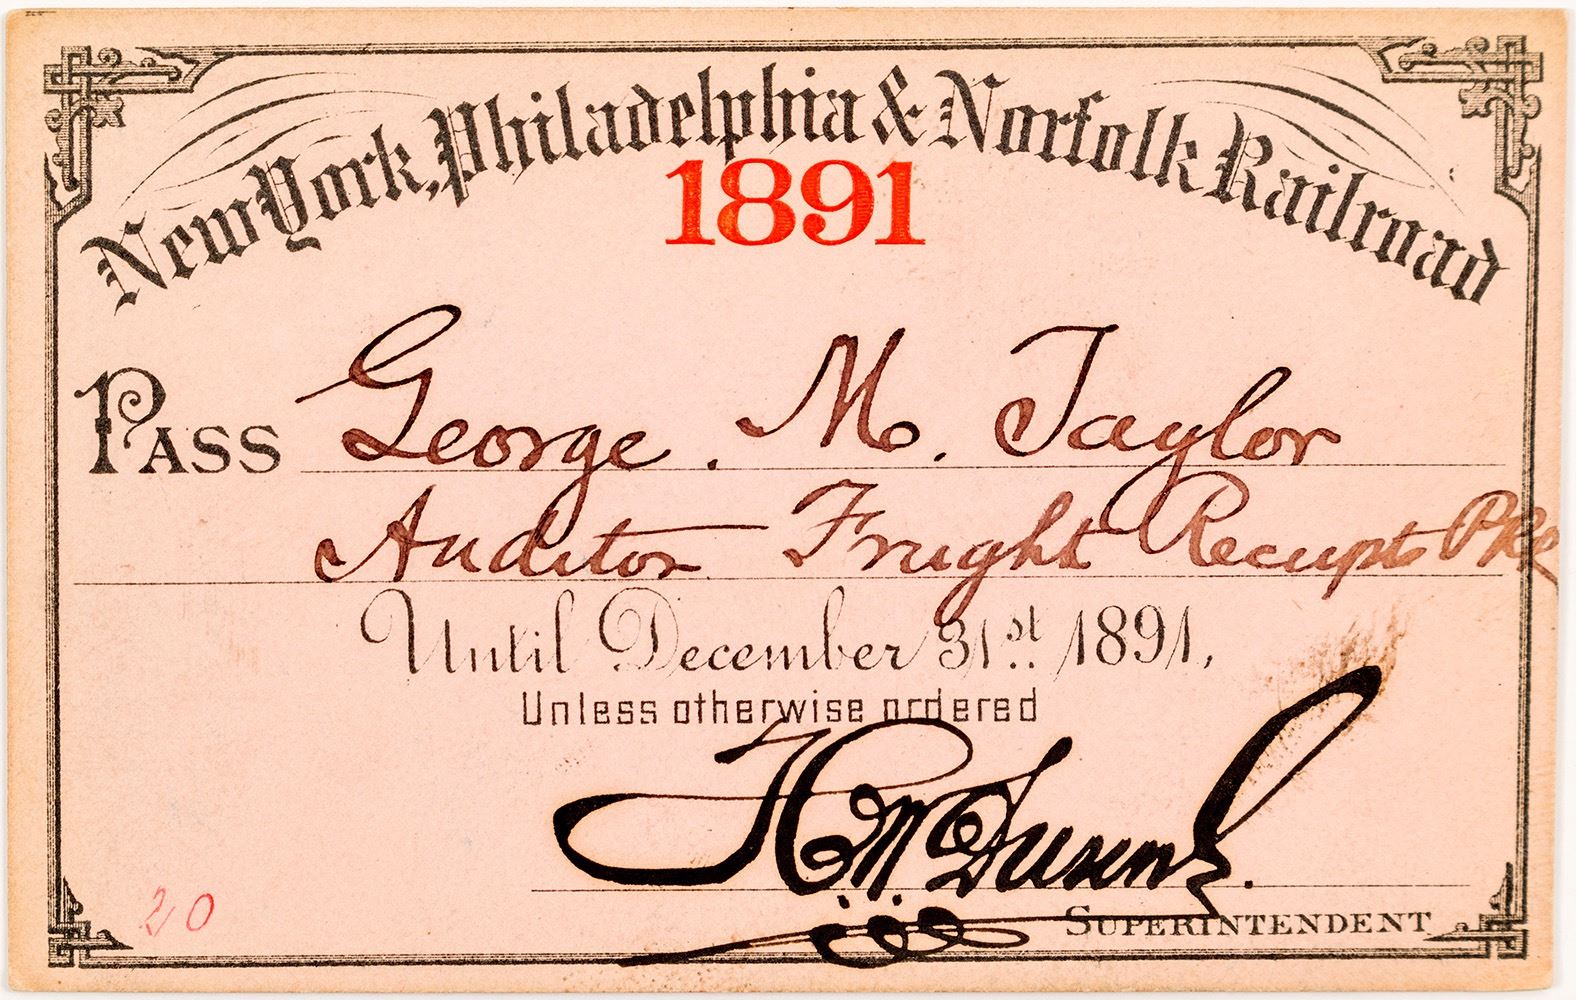 New York, Philadelphia & Norfolk Railroad
1891
PASS George. M. Taylor
Auditor Freight Receipts PRR
Until December 31st 1891.
Unless otherwise ordered
SUPERINTENDENT
20